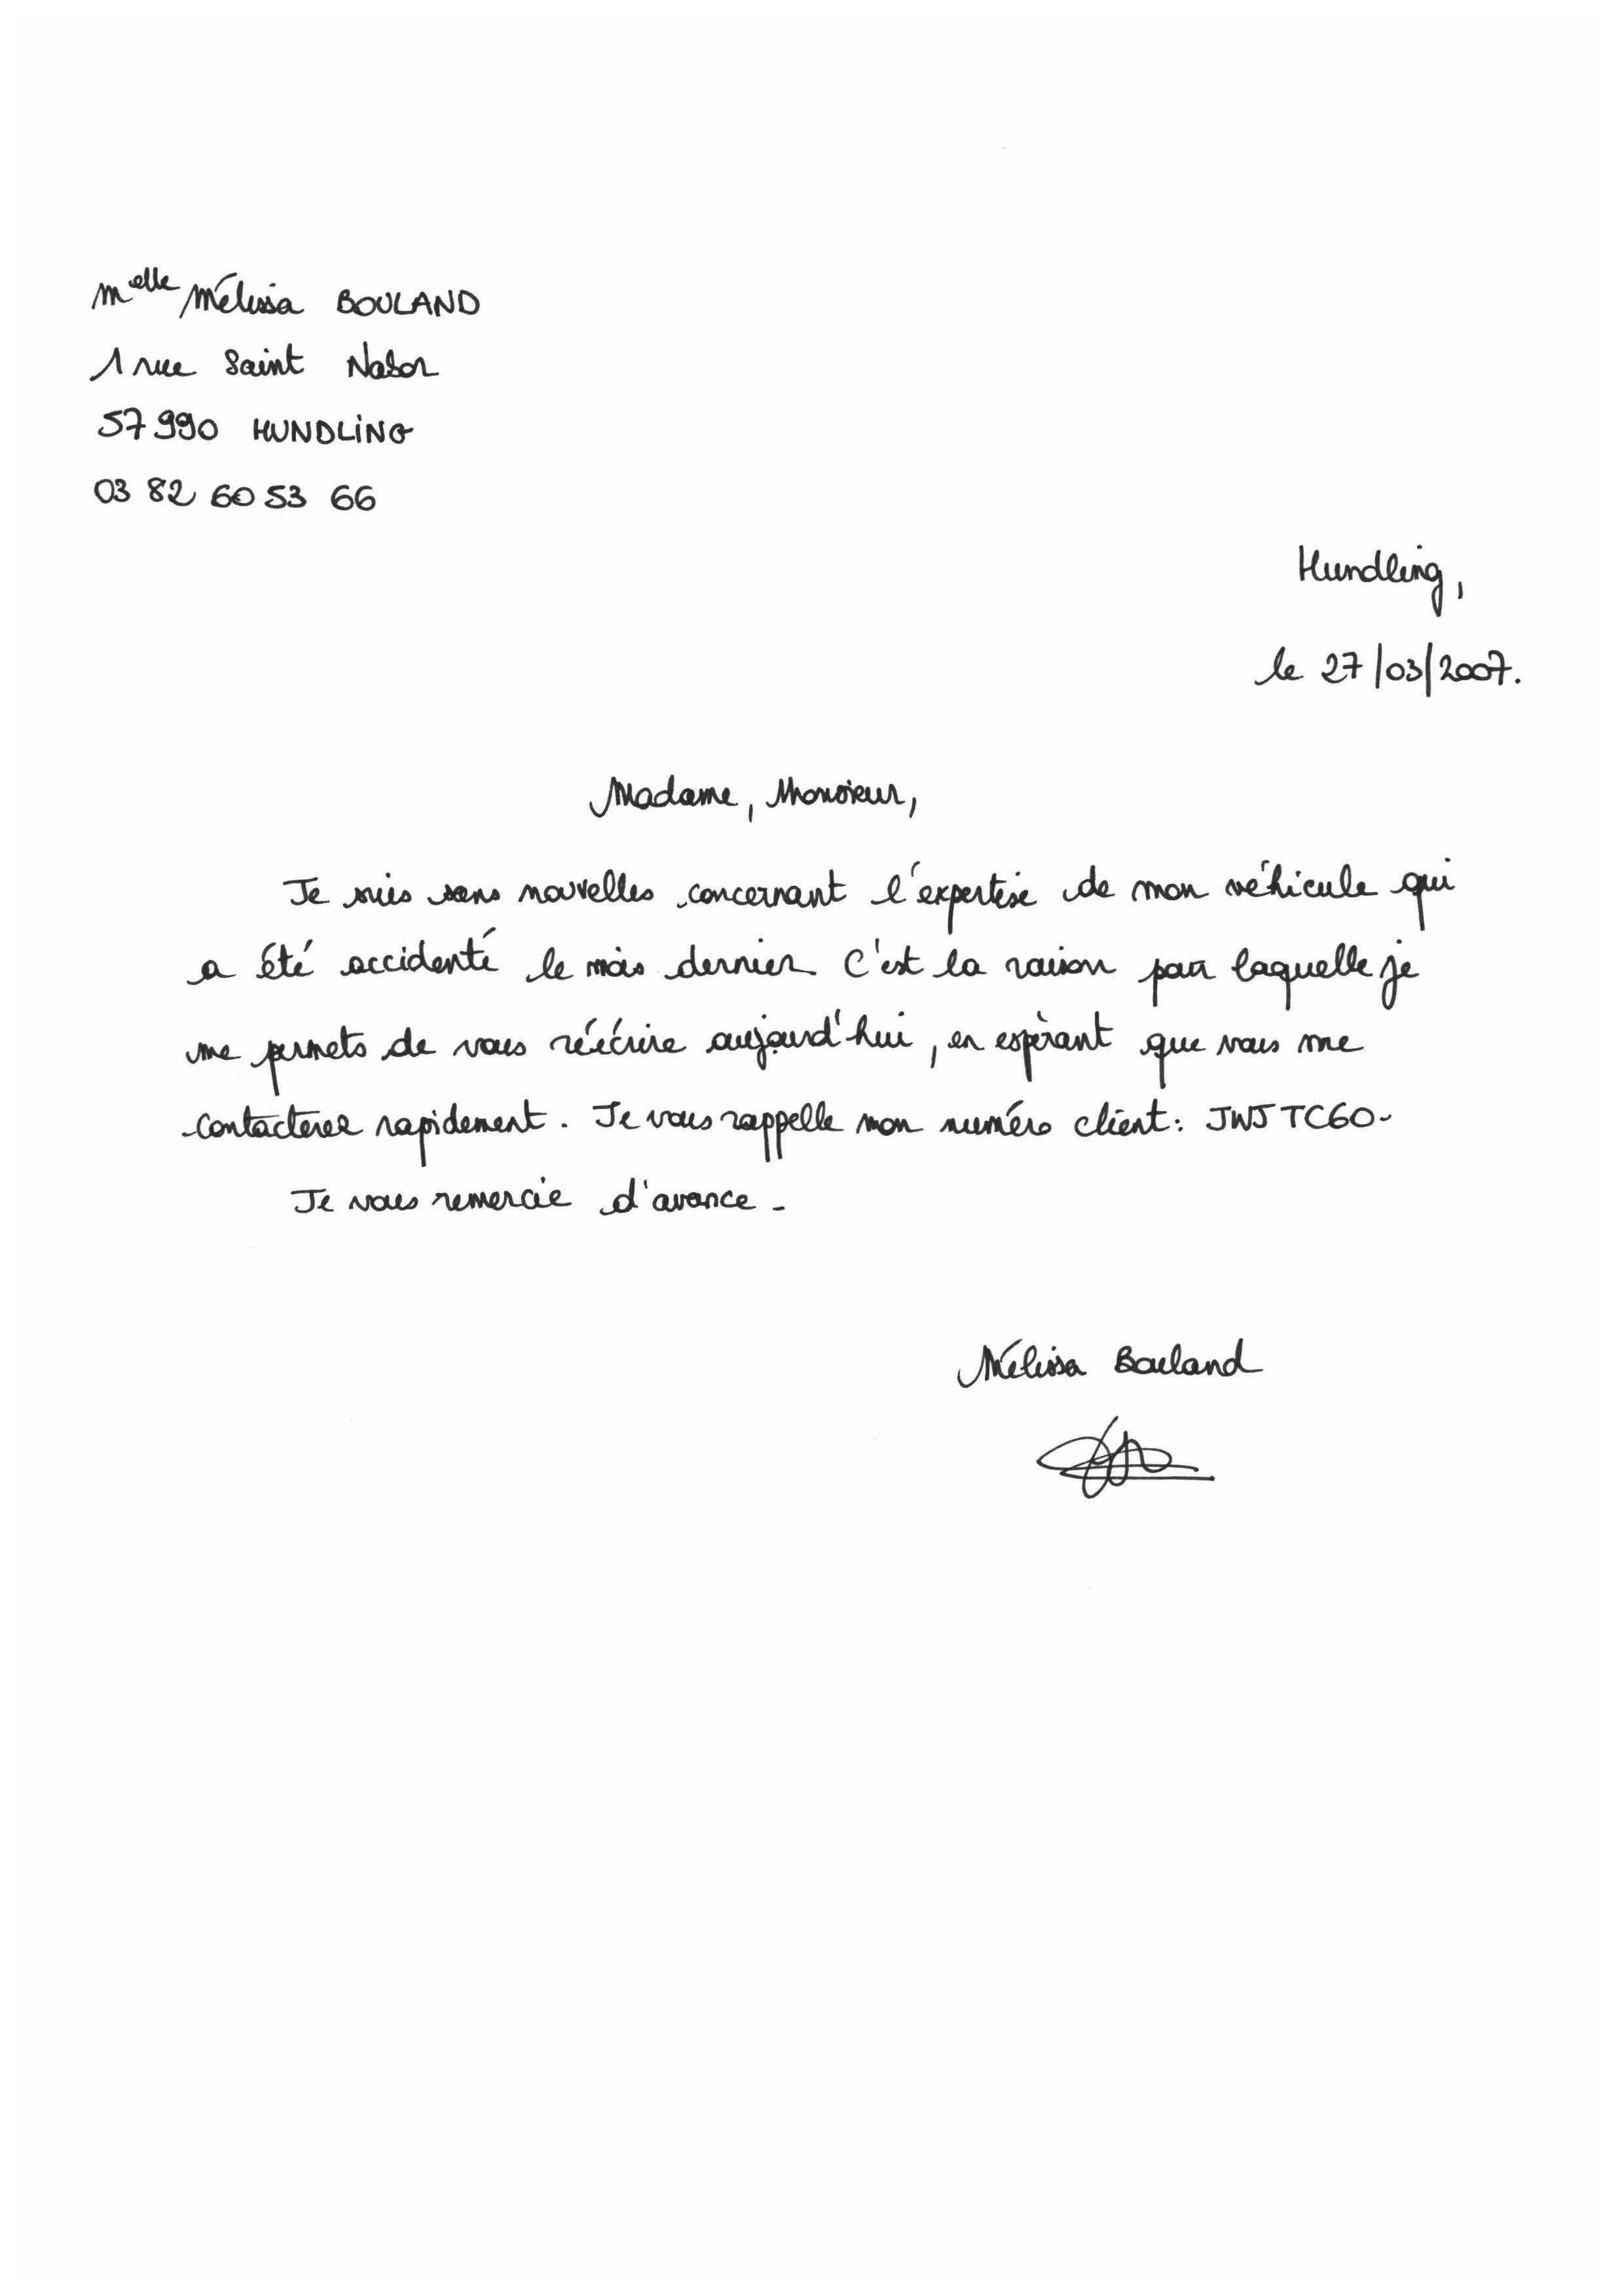 Melle Mélissa BOULAND
1 rue Saint Nabor
57990 HUNDLING
03 82 60 53 66
Hundling,
le 27/03/2007.
Madame, Monsieur,
Je suis sans nouvelles concernant l'expertise de mon véhicule qui
a été accidenté le mois dernier. C'est la raison pour laquelle je
me permets de vous réécrire aujourd'hui, en espérant que vous me
contacterez rapidement. Je vous rappelle mon numéro client : JWJTC60.
Je vous remercie d'avance.
Mélissa Bouland